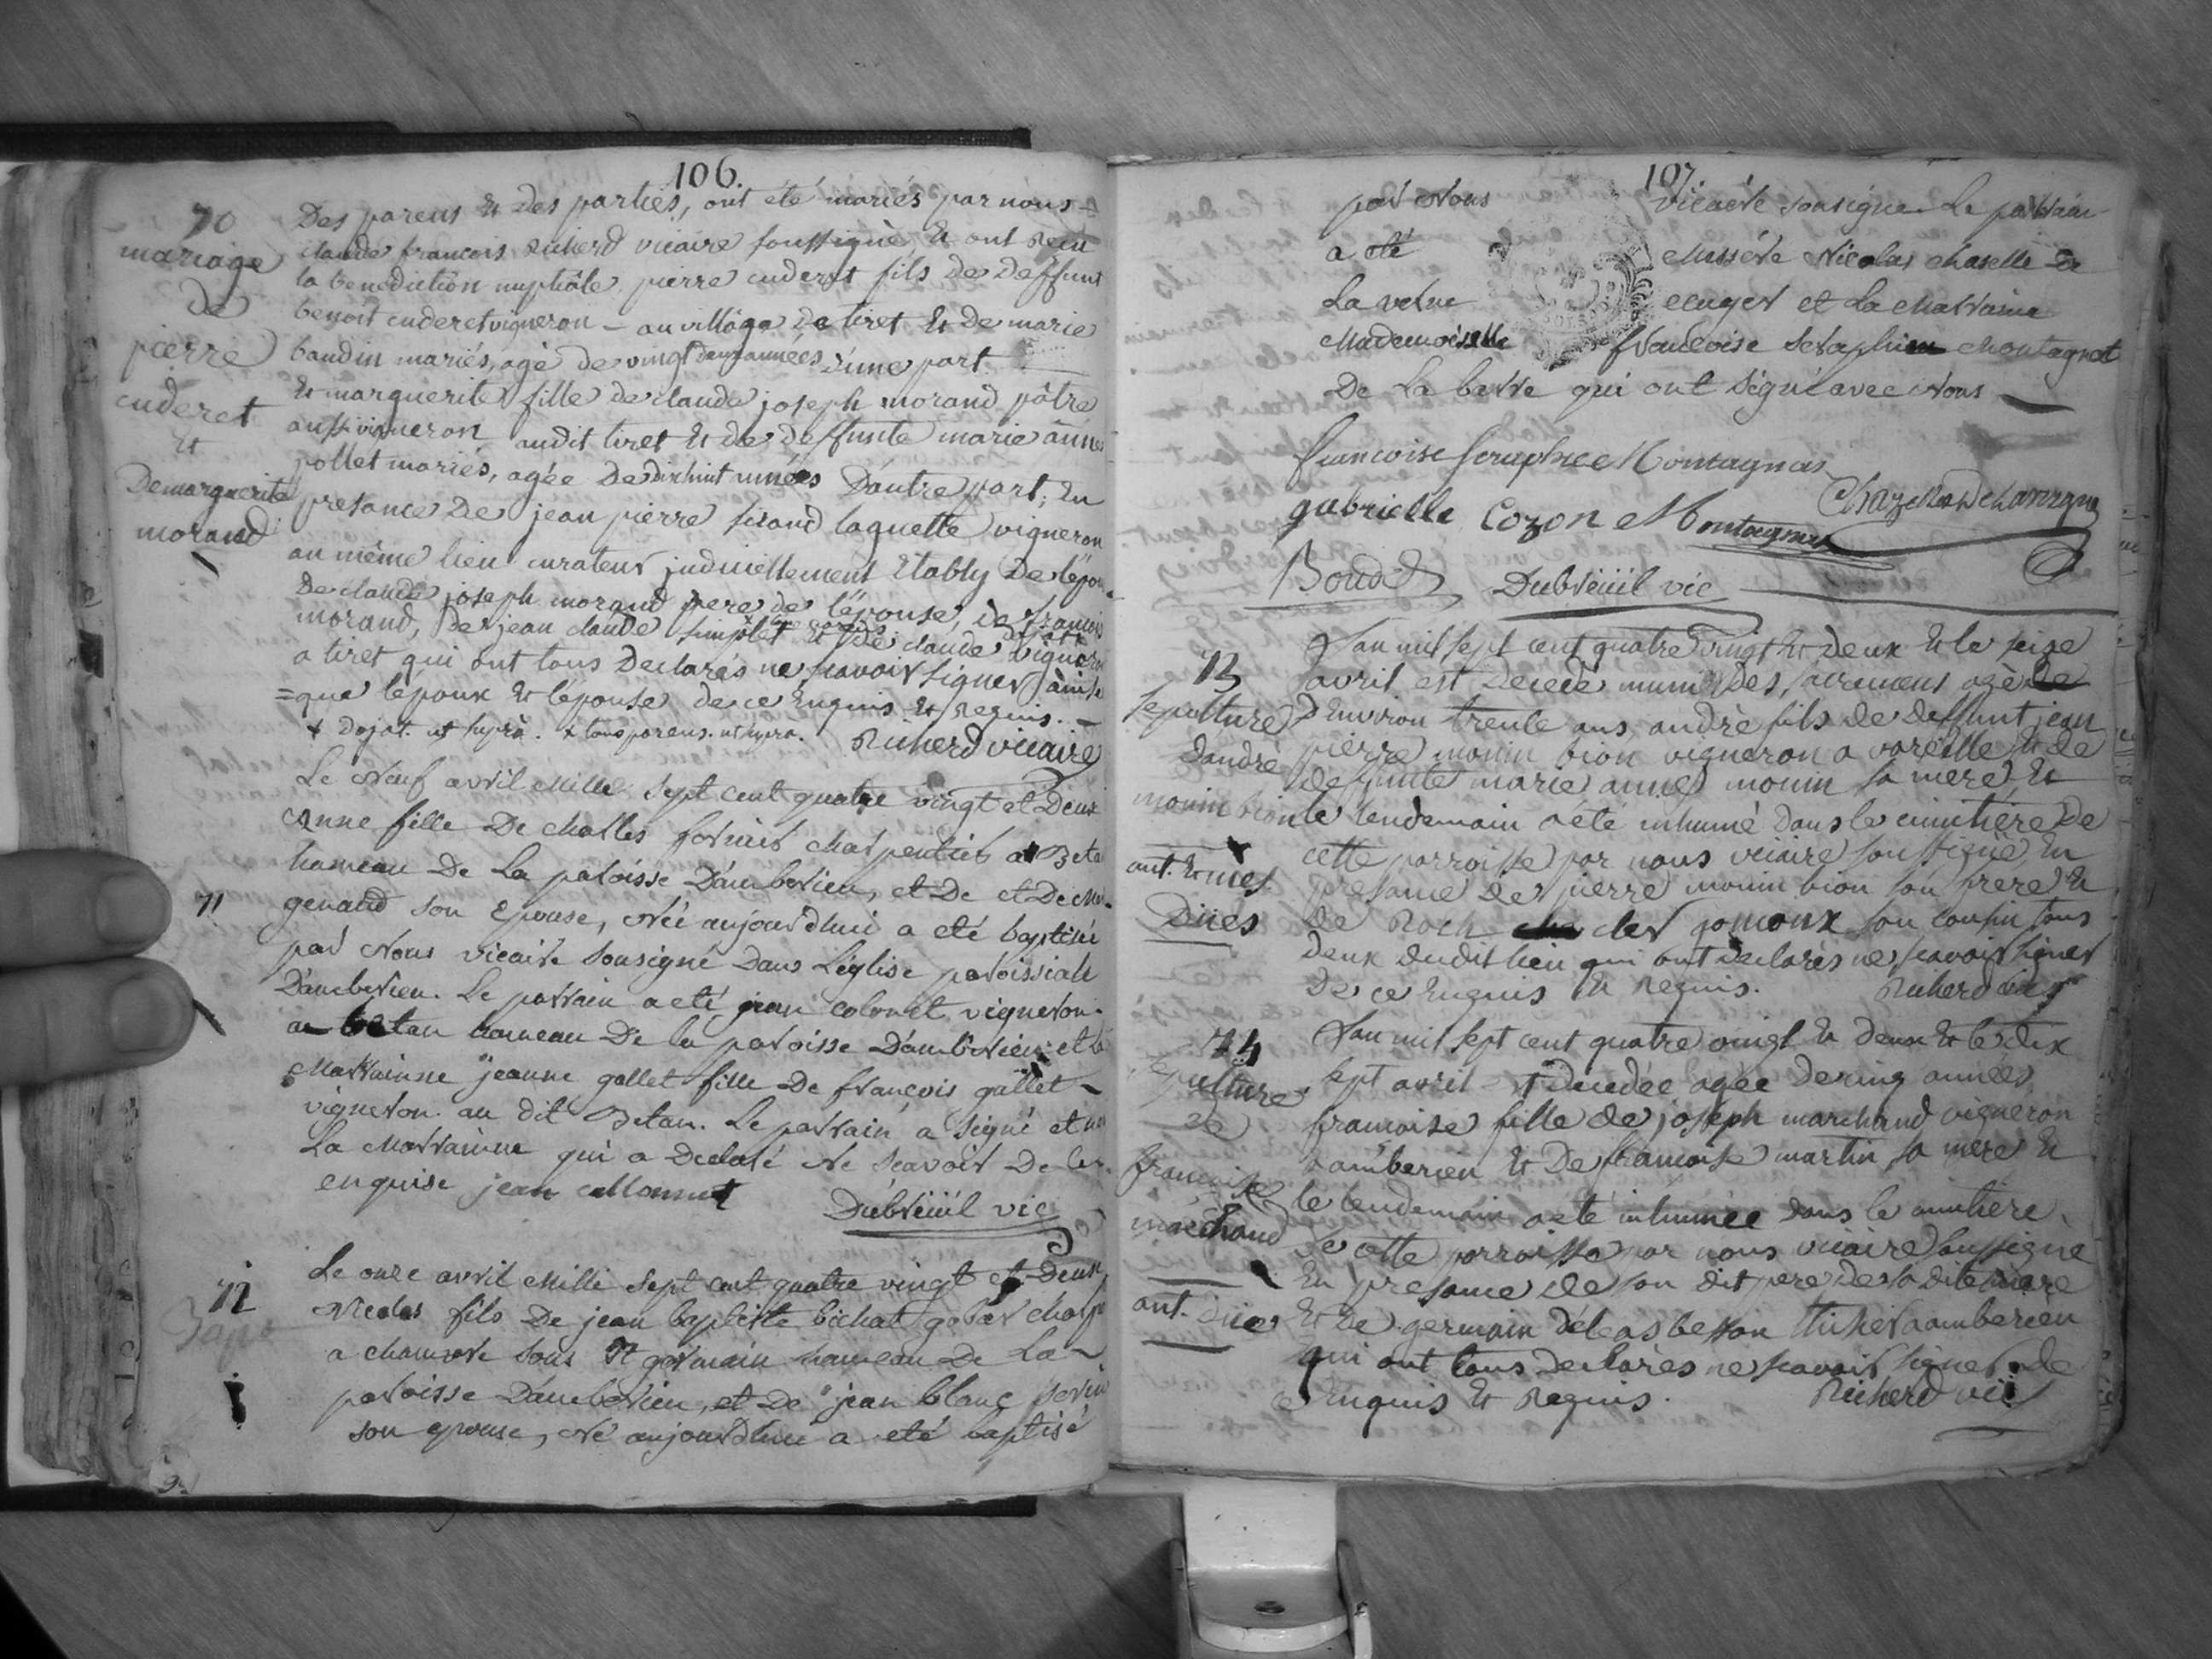 106.
70
mariage
de
pierre
cuderet
et
De marguerite
morand
Des parens et des parties, ont été mariés par nous
claude françois richerd vicaire soussigné et ont recu
la benediction nuptiale pierre cuderet fils de deffunt
benoit cuderet vigneron - au village de tiret et de marie
baudin mariés, agé de vingt deux années d'une part.
et marguerite fille de claude joseph morand pâtre
aussi vigneron audit tiret et de deffunte marie anne
pollet mariés, agée de dix huit années D'autre part; En
presance De jean pierre sirand laguette vigneron
au même lieu curateur judiciellement Etably De l'épou
De claude joseph morand pere de l'épouse, de françois
morand, de jean claude simplet et de claude vigneron
a tiret qui ont tous Declarés ne scavoir signer ainsi
=que l'époux et l'épouse de ce Enquis et requis. -
+ dojat. ut suprà. x tous parens. ut suprà. Richerd vicaire
71
Le Neuf avril Mille Sept cent quatre vingt et Deux
Anne fille De Charles fornier Charpentier a Beta
hameau De La paroisse D'amberieu, et De et De
genaud son Epouse, Née aujourd'hui a eté baptisée
par Nous vicaire Sousigné Dans L'église paroissiale
D'amberieu. Le parrain a eté jean colonet vigneron
a betan hameau De la paroisse D'amberieu et la
Marrainne jeanne gallet fille De françois gallet
vigneron au dit Betan. Le parrain a signé et non
La Marrainne qui a Declaré Ne Scavoir De ce
enquise jean collonnet Dubreüil vic
72
Le onze avril Mille Sept cent quatre vingt et Deux
Nicolas fils De jean baptiste bichat gobar charp
a chamvre sous St germain hameau De La
paroisse D'amberieu, et De jean blanc
son epouse, Né aujourd'hui a eté baptisé
107.
par Nous vicaire sousigné. Le parrain
a été Messire Nicolas chaselle De
La velue ecuyer et La Marraine
Mademoiselle françoise Seraphien Montagnat
De La berre qui ont signé avec Nous
francoise seraphice Montagnat
gabrielle Cozon Montagnat
Boudet Dubreüil vic
73
Sepulture
D'andré
monin bion
ant. et mes.
Dües
L'an mil sept cent quatre vingt et deux et le seise
avril est decedé muni des sacremens agé de
D'environ trente ans andré fils de deffunt jean
pierre monin bion vigneron a vareille et de
deffunte marie anne monin sa mere, et
le lendemain a été inhumé dans le cimitiére De
cette parroisse par nous vicaire soussigné, En
presance de pierre monin bion son frere et
de Roch cler jomoux son cousin tous
deux dudit lieu qui ont declarés ne scavoir signer
De ce Enquis et Requis. Richerd vic
74
Sepulture
de
francoise
marchand
ant. düe
L'an mil sept cent quatre vingt et deux et le dix
sept avril est decedée agée de cinq années
francoise fille de joseph marchand vigneron
a amberieu et De francoise martin sa mere et
le lendemain a été inhumée dans le cimitiére
de cette parroisse par nous vicaire soussigné
En presance de son dit pere de sa dite mere
et de germain déléas besson a amberieu
qui ont tous declarés ne scavoir signer de
ce Enquis et Requis. Richerd vic